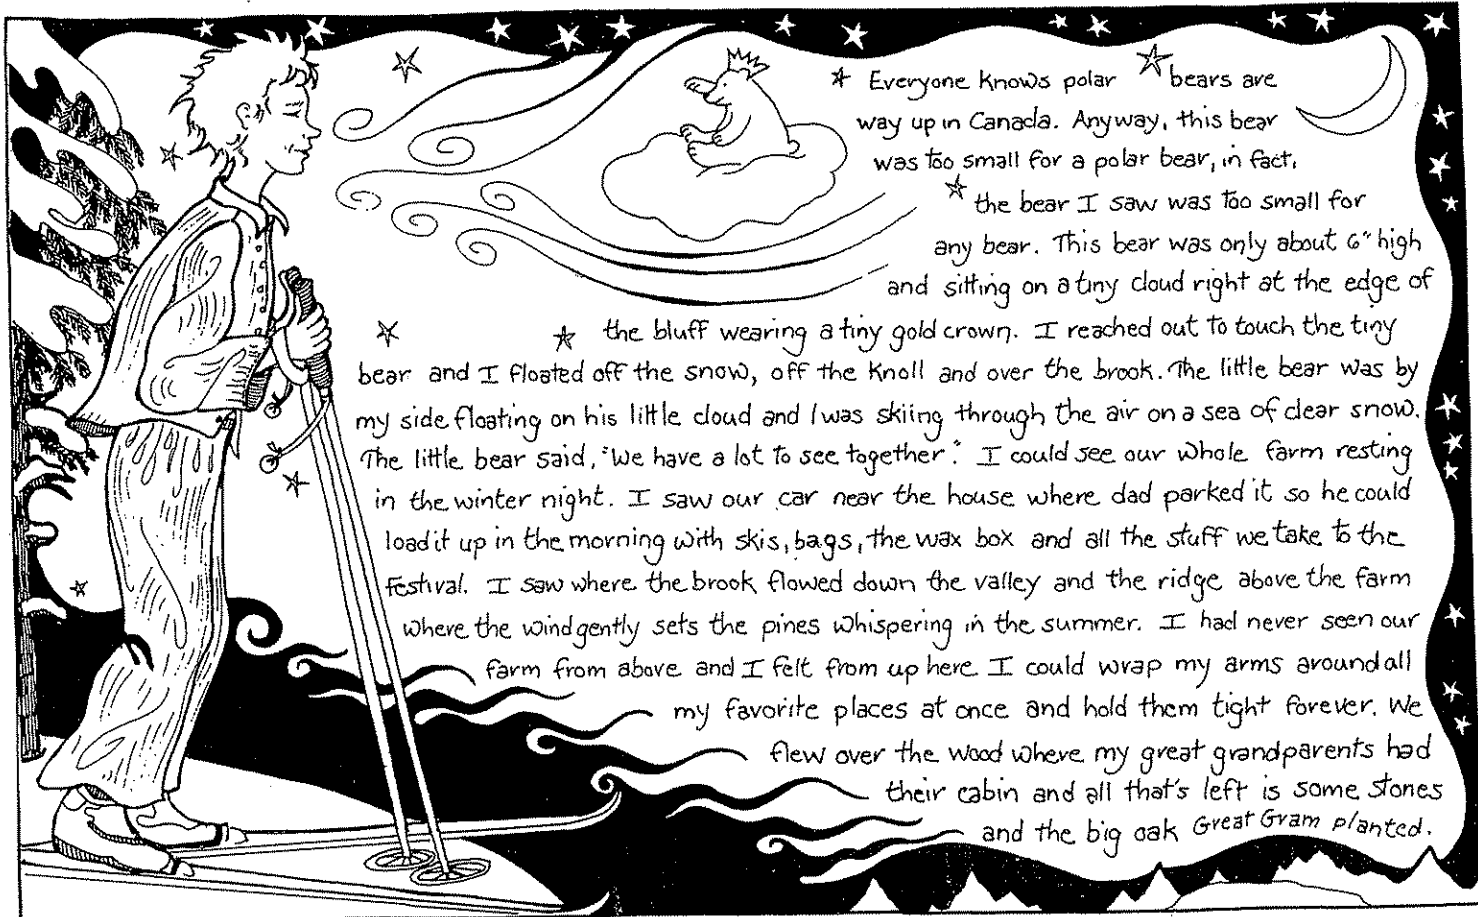 Everyone knows polar bears are
way up in Canada. Anyway, this bear
was too small for a polar bear, in fact,
the bear I saw was too small for
any bear. This bear was only about 6" high
and sitting on a tiny cloud right at the edge of
the bluff wearing a tiny gold crown. I reached out to touch the tiny
bear and I floated off the snow, off the knoll and over the brook. The little bear was by
my side floating on his little cloud and I was skiing through the air on a sea of clear snow.
The little bear said, "We have a lot to see together". I could see our whole farm resting
in the winter night. I saw our car near the house where dad parked it so he could
load it up in the morning with skis, bags, the wax box and all the stuff we take to the
festival. I saw where the brook flowed down the valley and the ridge above the farm
where the wind gently sets the pines whispering in the summer. I had never seen our
farm from above and I felt from up here I could wrap my arms around all
my favorite places at once and hold them tight forever. We
flew over the wood where my great grandparents had
their cabin and all that's left is some stones
and the big oak Great Gram planted.